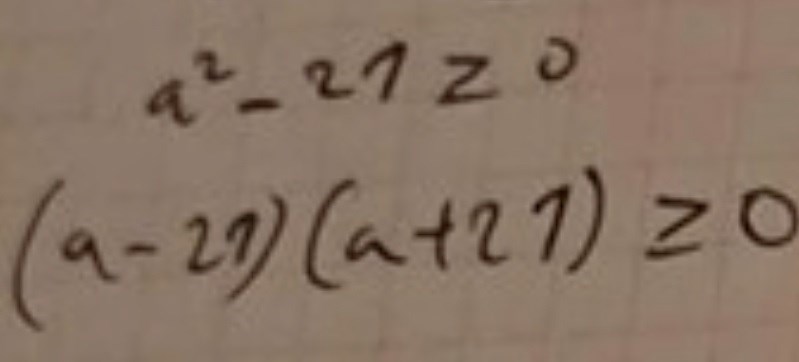 a² - 21 ≥ 0
(a - 21)(a + 21) ≥ 0